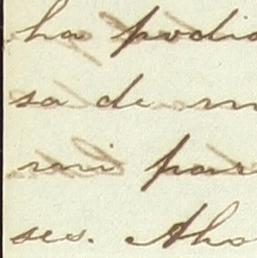 ha podid
sa de m
mi par
ses. Aho